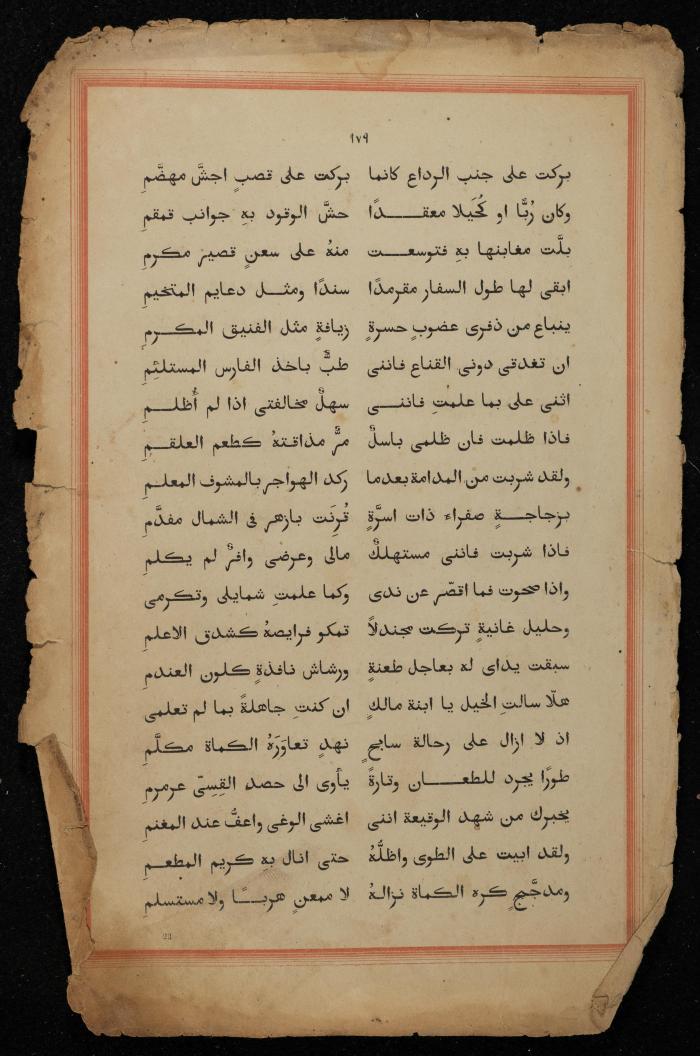 ١٧٩
بركت على جنب الرداع كانما بركت على قصبٍ اجشَّ مهضَّمِ
وكان رُبًّا او كُحَيلا معقــدًا حشَّ الوقود بهِ جوانب قمقمِ
بلَّت مغابنها بهِ فتوسعــت منهُ على سعنٍ قصيرٍ مكرمِ
ابقى لها طول السفار مقرمدًا سندًا ومثــل دعايم المتخيمِ
ينباع من ذفرى عضوبٍ حسرةٍ زيافةٍ مثل الفنيق المكــرمِ
ان تغدقى دونى القناع فاننى طبٌّ باخذ الفارس المستلئِمِ
اثنى على بما علمتِ فاننــى سهلٌ مخالفتى اذا لم أُظلــمِ
فاذا ظلمت فان ظلمى باسلٌ مرٌّ مذاقتهُ كطعم العلقــمِ
ولقد شربت من المدامة بعدما ركد الهواجر بالمشوف المعلــمِ
بزجاجــةٍ صفراء ذات اسرَّةٍ قُرِنَت بازهر فى الشمال مفدَّمِ
فاذا شربت فاننى مستهلكٌ مالى وعرضى وافرٌ لم يكلمِ
واذا صحوت فما اقصّر عن ندى وكما علمتِ شمايلى وتكرمى
وحليل غانيةٍ تركت مجندلاً تمكو فرايصهُ كشدق الاعلمِ
سبقت يداى له بعاجل طعنةٍ ورشاش نافذةٍ كلون العندمِ
هلّا سالتِ الخيل يا ابنة مالكٍ ان كنتِ جاهلةً بما لم تعلمى
اذ لا ازال على رحالة سابحٍ نهدٍ تعاوَرَهُ الكماة مكلَّمِ
طورًا يجرد للطعــان وتارةً يأوى الى حصد القِسِىّ عرمرمِ
يخبرك من شهد الوقيعة اننى اغشى الوغى واعفُّ عند المغنمِ
ولقد ابيت على الطوى واظلُّهُ حتى انال بهِ كريم المطعــمِ
ومدجَّجٍ كره الكماة نزالهُ لا ممعنٍ هربــًا ولا مستسلمِ
23